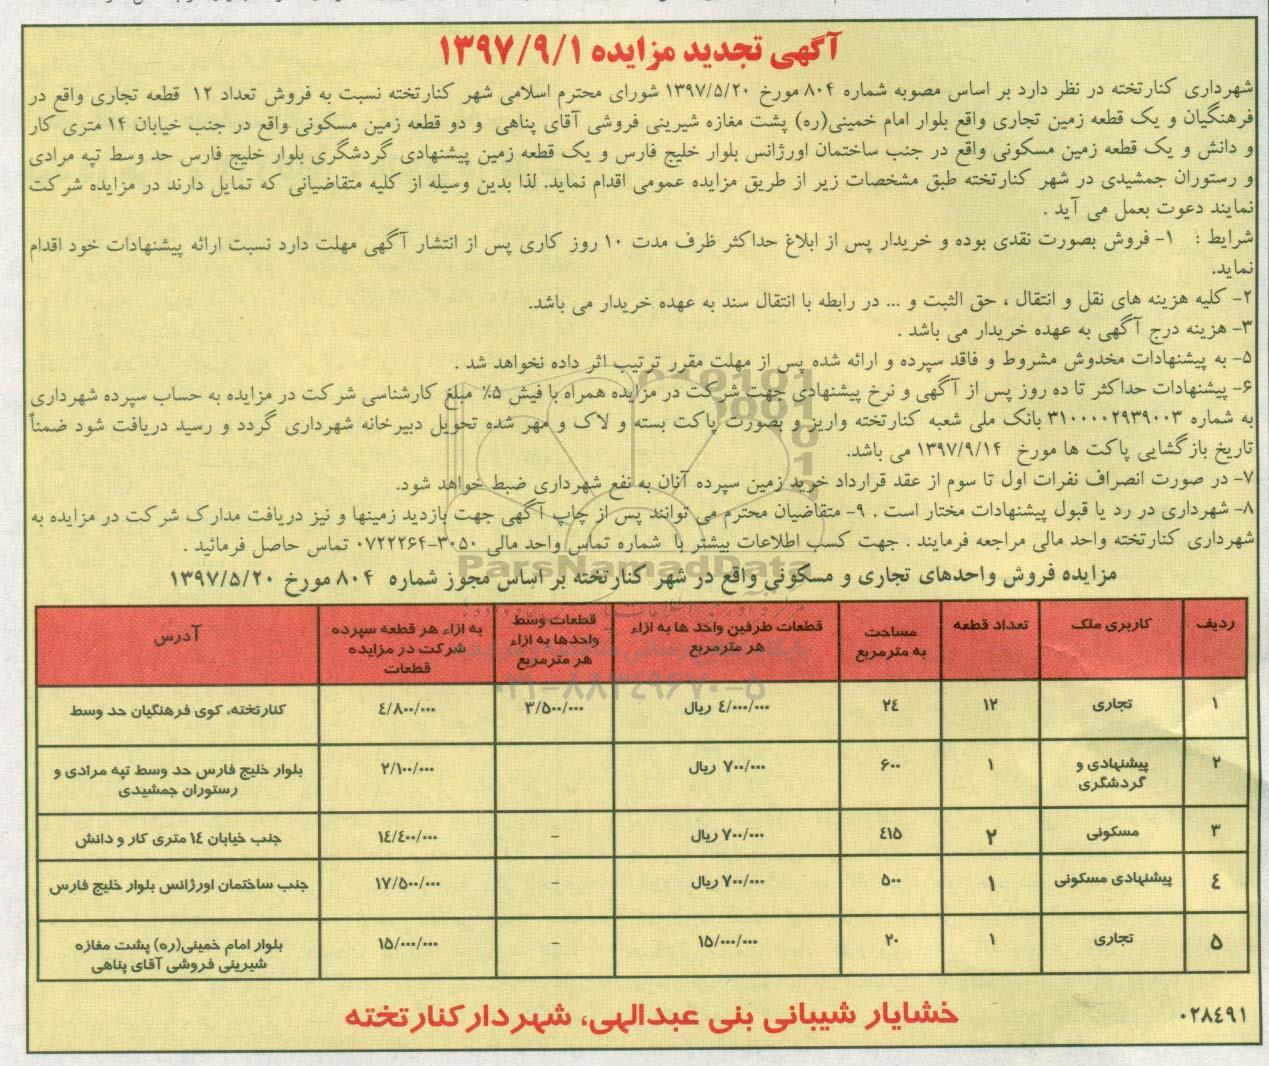 آگهی تجدید مزایده ۱۳۹۷/۹/۱
شهرداری کنارتخته در نظر دارد بر اساس مصوبه شماره ۸۰۴ مورخ ۱۳۹۷/۵/۲۰ شورای محترم اسلامی شهر کنارتخته نسبت به فروش تعداد ۱۲ قطعه تجاری واقع در
فرهنگیان و یک قطعه زمین تجاری واقع بلوار امام خمینی(ره) پشت مغازه شیرینی فروشی آقای پناهی و دو قطعه زمین مسکونی واقع در جنب خیابان ۱۴ متری کار
و دانش و یک قطعه زمین مسکونی واقع در جنب ساختمان اورژانس بلوار خلیج فارس و یک قطعه زمین پیشنهادی گردشگری بلوار خلیج فارس حد وسط تپه مرادی
و رستوران جمشیدی در شهر کنارتخته طبق مشخصات زیر از طریق مزایده عمومی اقدام نماید. لذا بدین وسیله از کلیه متقاضیانی که تمایل دارند در مزایده شرکت
نمایند دعوت بعمل می آید .
شرایط : ۱- فروش بصورت نقدی بوده و خریدار پس از ابلاغ حداکثر ظرف مدت ۱۰ روز کاری پس از انتشار آگهی مهلت دارد نسبت ارائه پیشنهادات خود اقدام
نماید.
۲- کلیه هزینه های نقل و انتقال ، حق الثبت و ... در رابطه با انتقال سند به عهده خریدار می باشد.
۳- هزینه درج آگهی به عهده خریدار می باشد .
۵- به پیشنهادات مخدوش مشروط و فاقد سپرده و ارائه شده پس از مهلت مقرر ترتیب اثر داده نخواهد شد .
۶- پیشنهادات حداکثر تا ده روز پس از آگهی و نرخ پیشنهادی جهت شرکت در مزایده همراه با فیش ۵٪ مبلغ کارشناسی شرکت در مزایده به حساب سپرده شهرداری
به شماره ۳۱۰۰۰۰۲۹۳۹۰۰۳ بانک ملی شعبه کنارتخته واریز و بصورت پاکت بسته و لاک و مهر شده تحویل دبیرخانه شهرداری گردد و رسید دریافت شود ضمناً
تاریخ بازگشایی پاکت ها مورخ ۱۳۹۷/۹/۱۴ می باشد.
۷- در صورت انصراف نفرات اول تا سوم از عقد قرارداد خرید زمین سپرده آنان به نفع شهرداری ضبط خواهد شود.
۸- شهرداری در رد یا قبول پیشنهادات مختار است . ۹- متقاضیان محترم می توانند پس از چاپ آگهی جهت بازدید زمینها و نیز دریافت مدارک شرکت در مزایده به
شهرداری کنارتخته واحد مالی مراجعه فرمایند . جهت کسب اطلاعات بیشتر با شماره تماس واحد مالی ۳۰۵۰-۰۷۲۲۲۶۴ تماس حاصل فرمائید .
ParsNamadData
مزایده فروش واحدهای تجاری و مسکونی واقع در شهر کنارتخته بر اساس مجوز شماره ۸۰۴ مورخ ۱۳۹۷/۵/۲۰
ردیف کاربری ملک تعداد قطعه مساحت به مترمربع قطعات طرفین واحد ها به ازاء هر مترمربع قطعات وسط واحدها به ازاء هر مترمربع به ازاء هر قطعه سپرده شرکت در مزایده قطعات آدرس
۰۲۱-۸۸۳۴۹۶۷۰-۵
۱ تجاری ۱۲ ۲٤ ٤/۰۰۰/۰۰۰ ریال ۳/۵۰۰/۰۰۰ ٤/۸۰۰/۰۰۰ کنارتخته، کوی فرهنگیان حد وسط
۲ پیشنهادی و گردشگری ۱ ۶۰۰ ۷۰۰/۰۰۰ ریال ۲/۱۰۰/۰۰۰ بلوار خلیج فارس حد وسط تپه مرادی و رستوران جمشیدی
۳ مسکونی ۲ ٤۱۵ ۷۰۰/۰۰۰ ریال – ۱٤/٤۰۰/۰۰۰ جنب خیابان ۱٤ متری کار و دانش
٤ پیشنهادی مسکونی ۱ ۵۰۰ ۷۰۰/۰۰۰ ریال – ۱۷/۵۰۰/۰۰۰ جنب ساختمان اورژانس بلوار خلیج فارس
۵ تجاری ۱ ۲۰ ۱۵/۰۰۰/۰۰۰ – ۱۵/۰۰۰/۰۰۰ بلوار امام خمینی(ره) پشت مغازه شیرینی فروشی آقای پناهی
خشایار شیبانی بنی عبدالهی، شهردار کنارتخته
۰۲۸٤۹۱